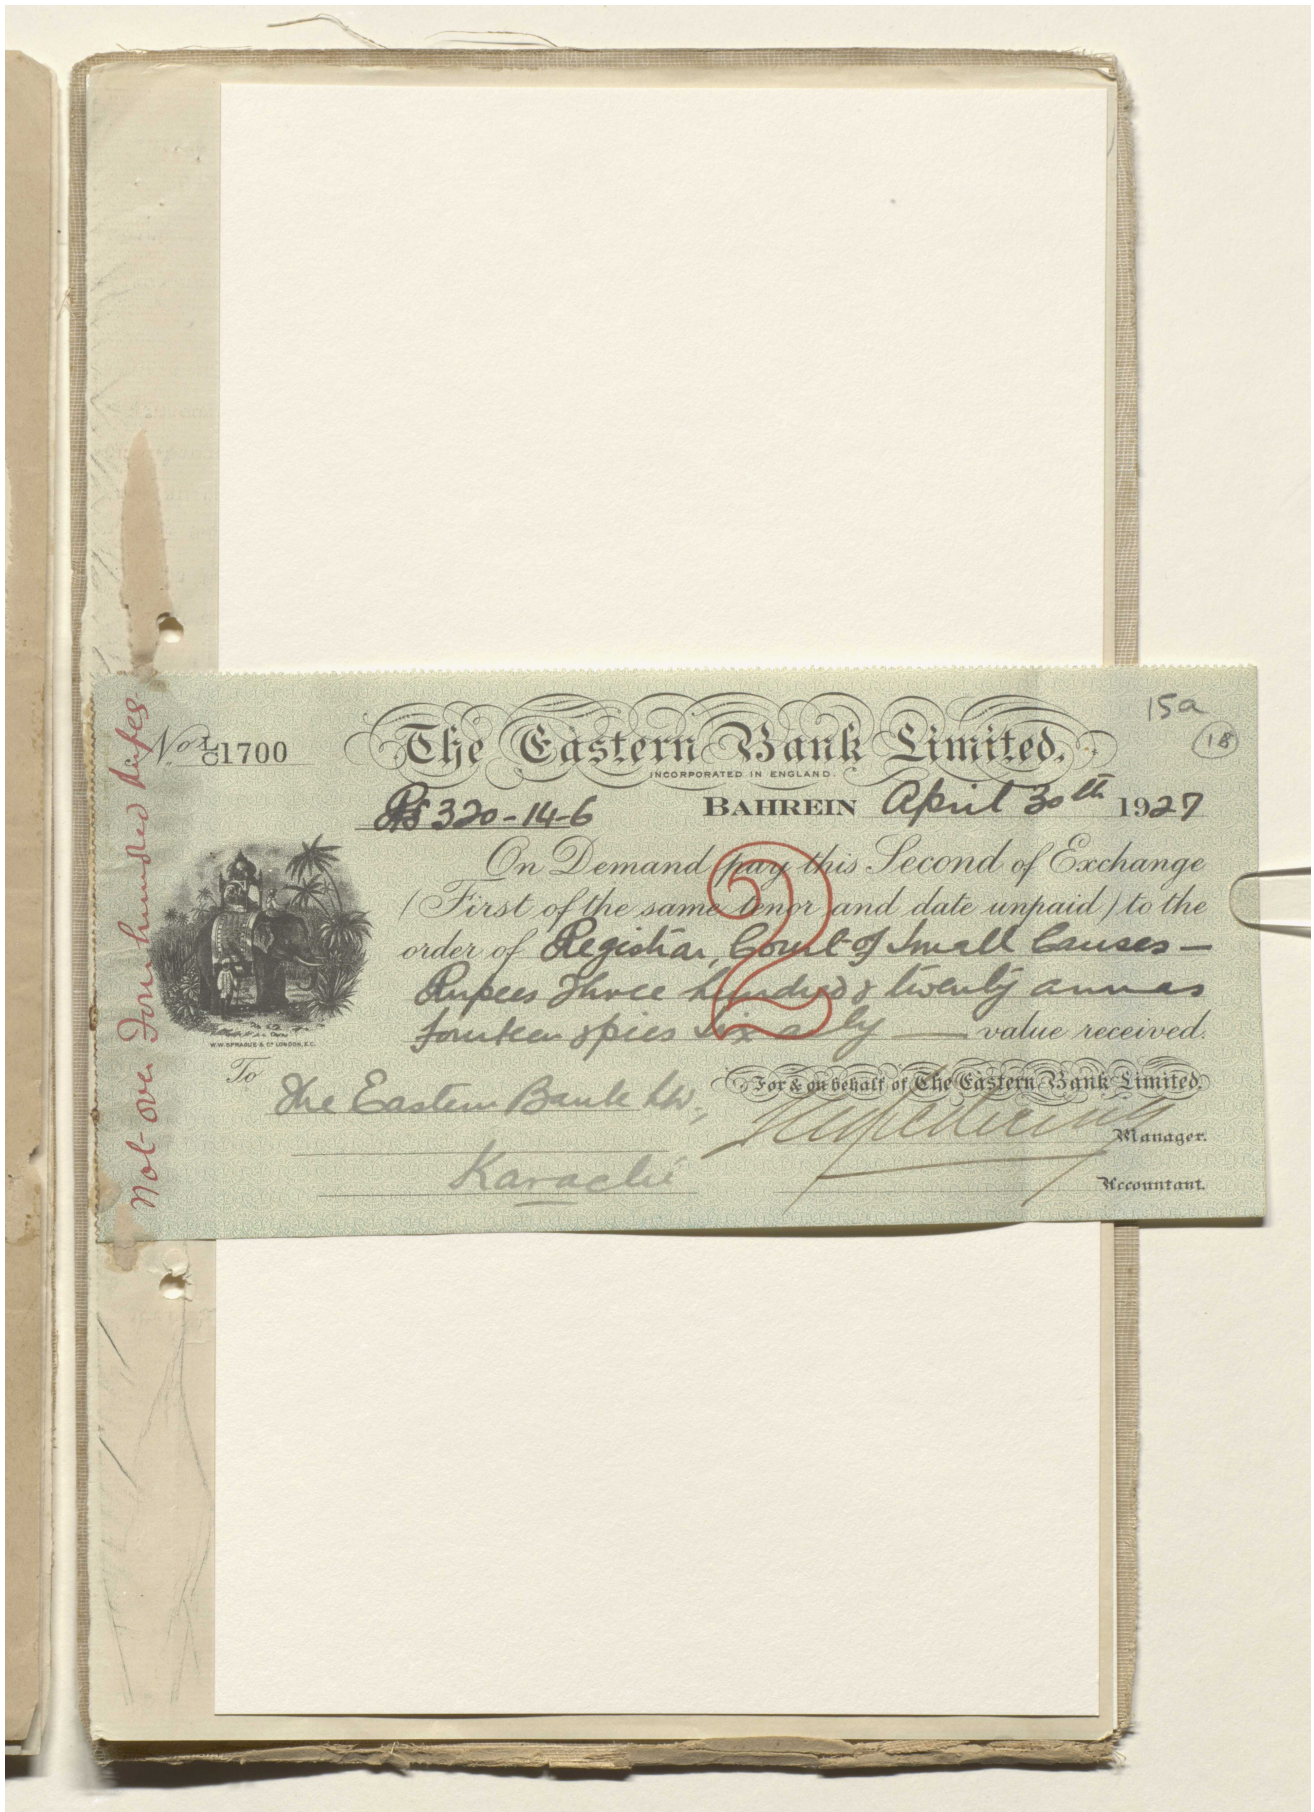 15a
18
No. LC1700
The Eastern Bank Limited.
INCORPORATED IN ENGLAND.
Rs 320-14-6
BAHREIN April 30th 1927
On Demand pay this Second of Exchange
(First of the same tenor and date unpaid) to the
order of Registrar, Court of Small Causes —
Rupees Three hundred & twenty annas
fourteen & pies six only — value received.
2
W.W. SPRAGUE & Co LONDON, E.C.
To
The Eastern Bank Ltd,
Karachi
For & on behalf of The Eastern Bank Limited.
Manager.
Accountant.
Not over Four hundred Rupees